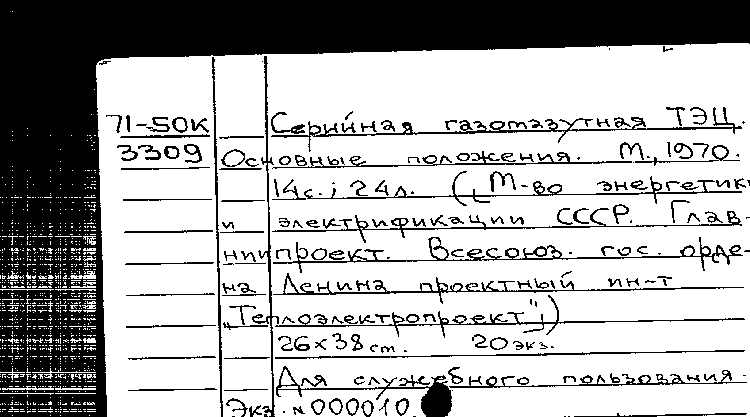 71-50к Серийная газомазутная ТЭЦ.
3309 Основные положения. М., 1970.
14с.; 24л. ([М-во энергетики
и электрификации СССР. Глав-
ниипроект. Всесоюз. гос. орде-
на Ленина проектный ин-т
„Теплоэлектропроект"])
26×38 см. 20 экз.
Для служебного пользования.
Экз. № 000010